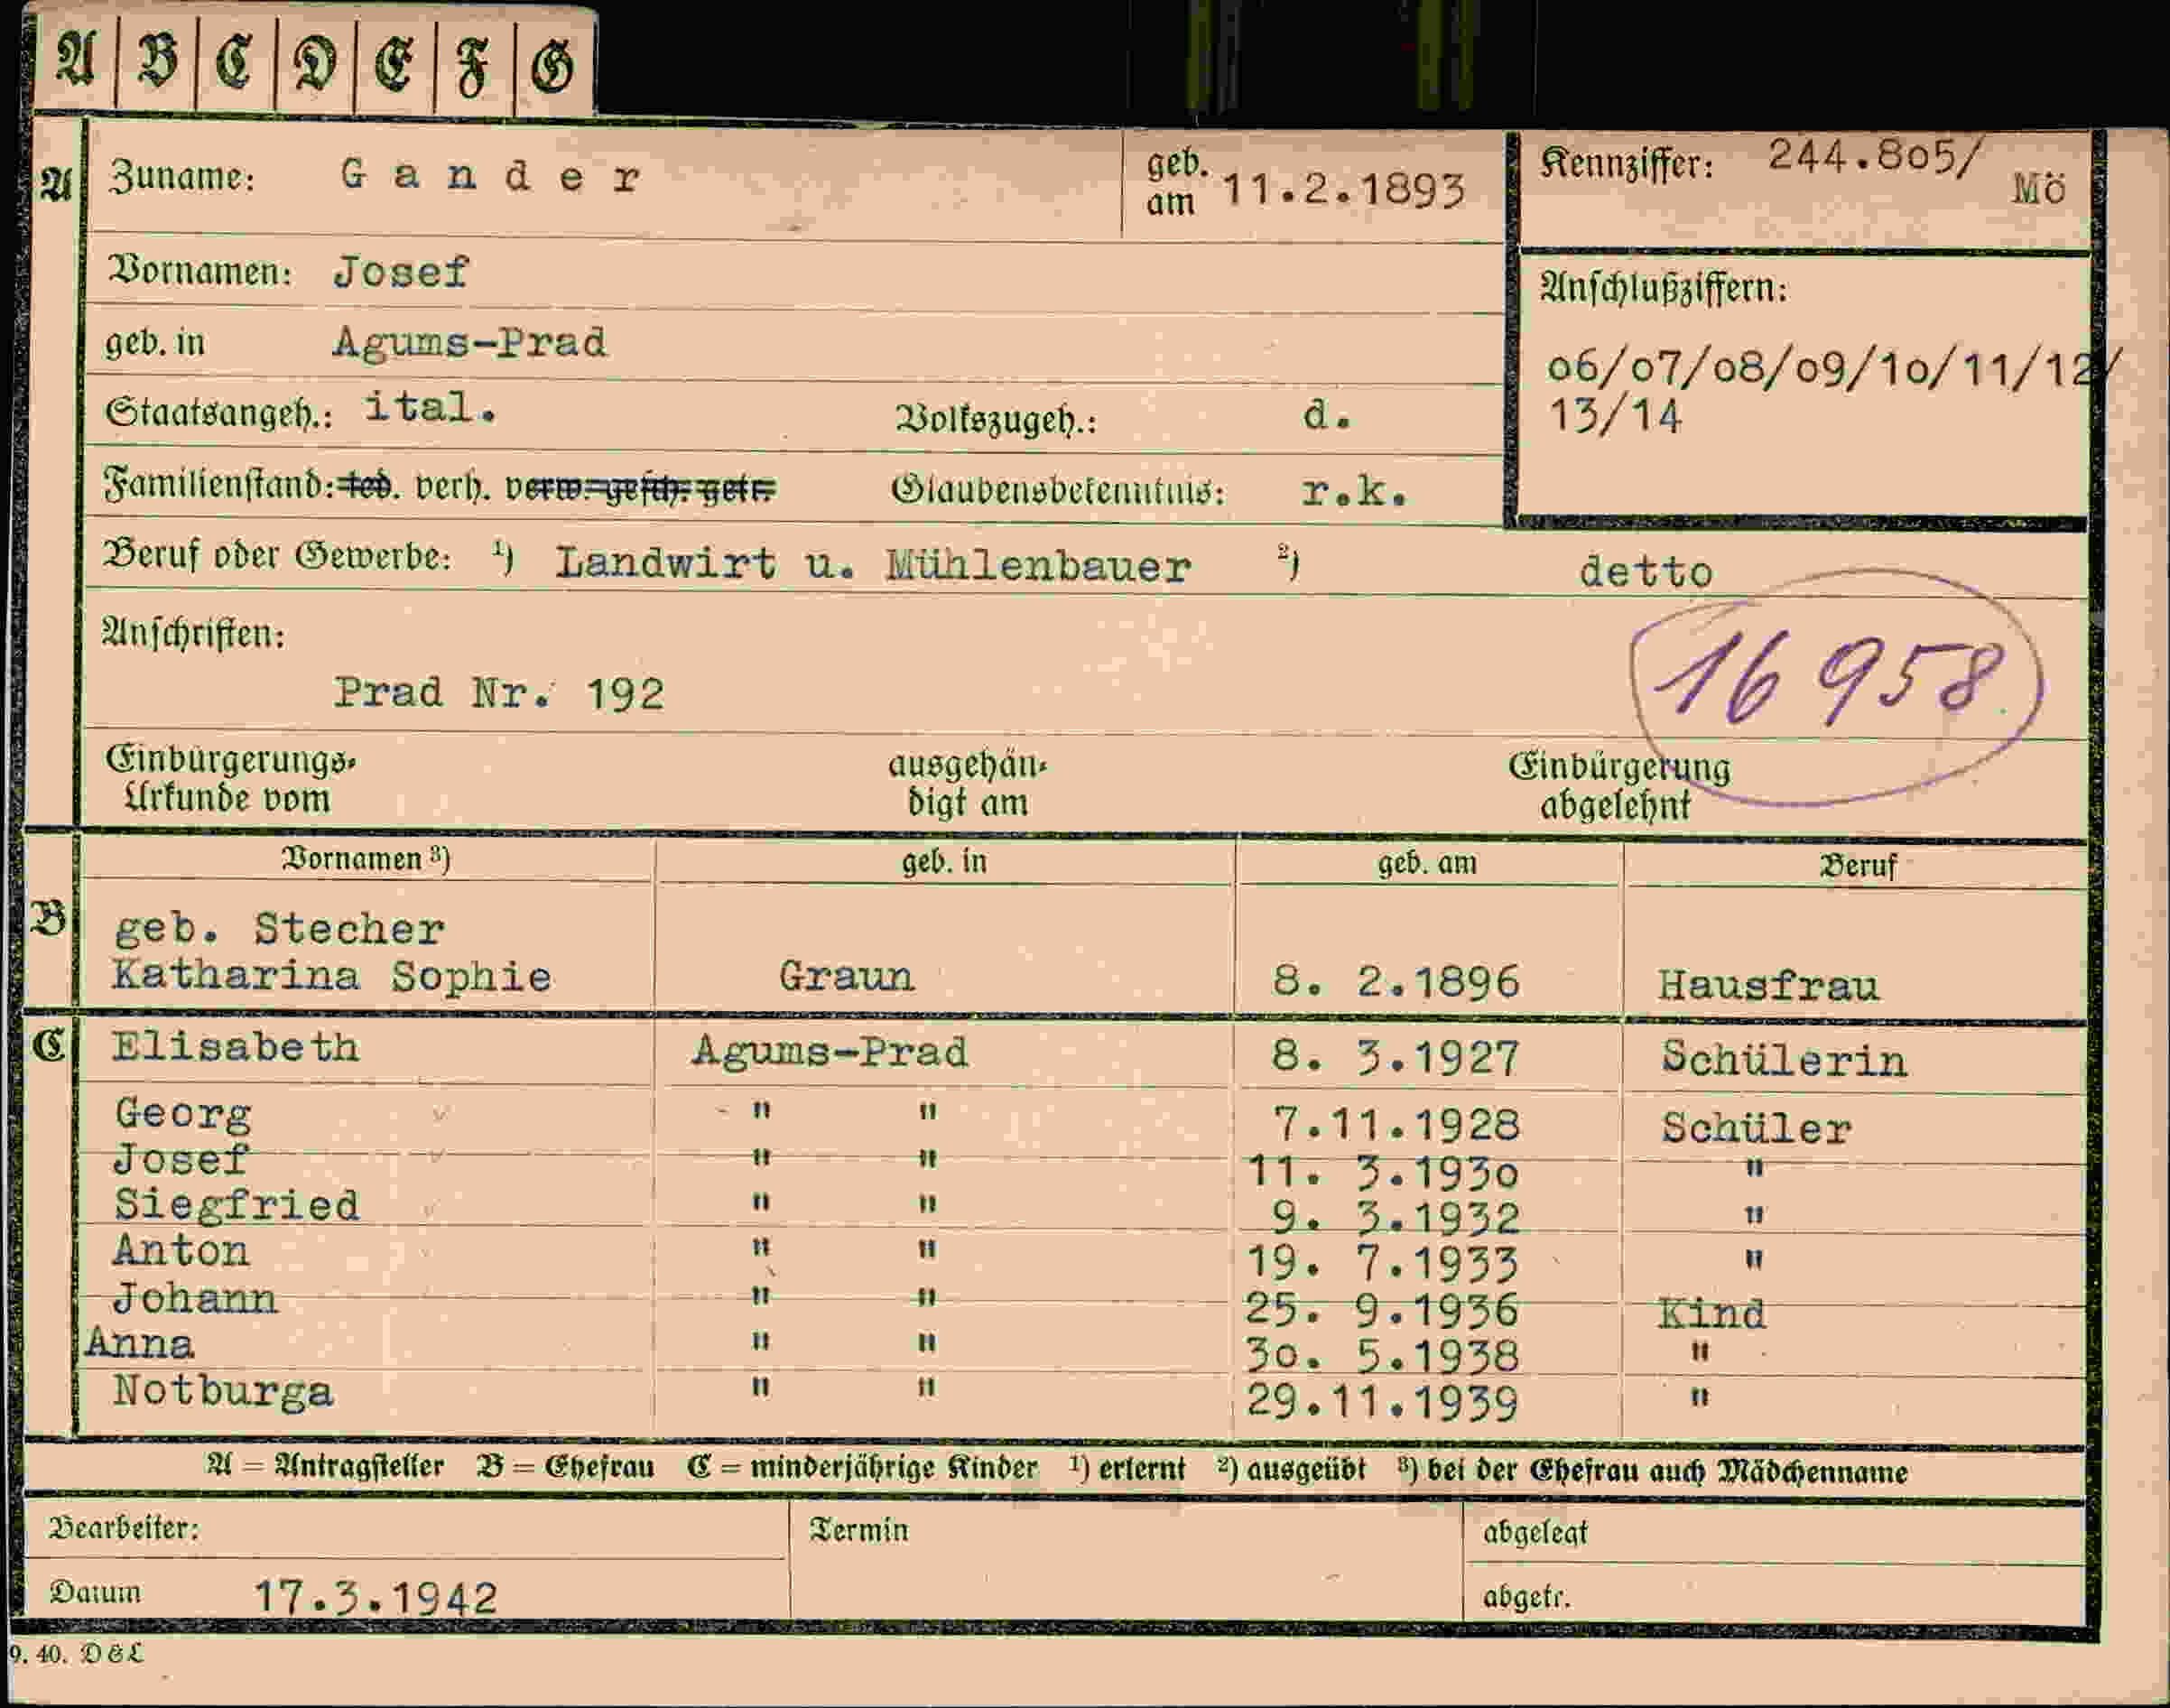 A B C D E F G
A Zuname: Gander geb. am 11.2.1893 Kennziffer: 244.805/ Mö
Vornamen: Josef
Anschlußziffern:
geb. in Agums-Prad
06/07/08/09/10/11/12/
13/14
Staatsangeh.: ital. Volkszugeh.: d.
Familienstand: led. verh. verw. gesch. getr. Glaubensbekenntnis: r.k.
Beruf oder Gewerbe: 1) Landwirt u. Mühlenbauer 2) detto
Anschriften:
16 958
Prad Nr. 192
Einbürgerungs- ausgehän- Einbürgerung
Urkunde vom digt am abgelehnt
Vornamen 3) geb. in geb. am Beruf
B geb. Stecher
Katharina Sophie Graun 8. 2.1896 Hausfrau
C Elisabeth Agums-Prad 8. 3.1927 Schülerin
Georg " " 7.11.1928 Schüler
Josef " " 11. 3.1930 "
Siegfried " " 9. 3.1932 "
Anton " " 19. 7.1933 "
Johann " " 25. 9.1936 Kind
Anna " " 30. 5.1938 "
Notburga " " 29.11.1939 "
A = Antragsteller B = Ehefrau C = minderjährige Kinder 1) erlernt 2) ausgeübt 3) bei der Ehefrau auch Mädchenname
Bearbeiter: Termin abgelegt
Datum 17.3.1942 abgetr.
9. 40. D & L